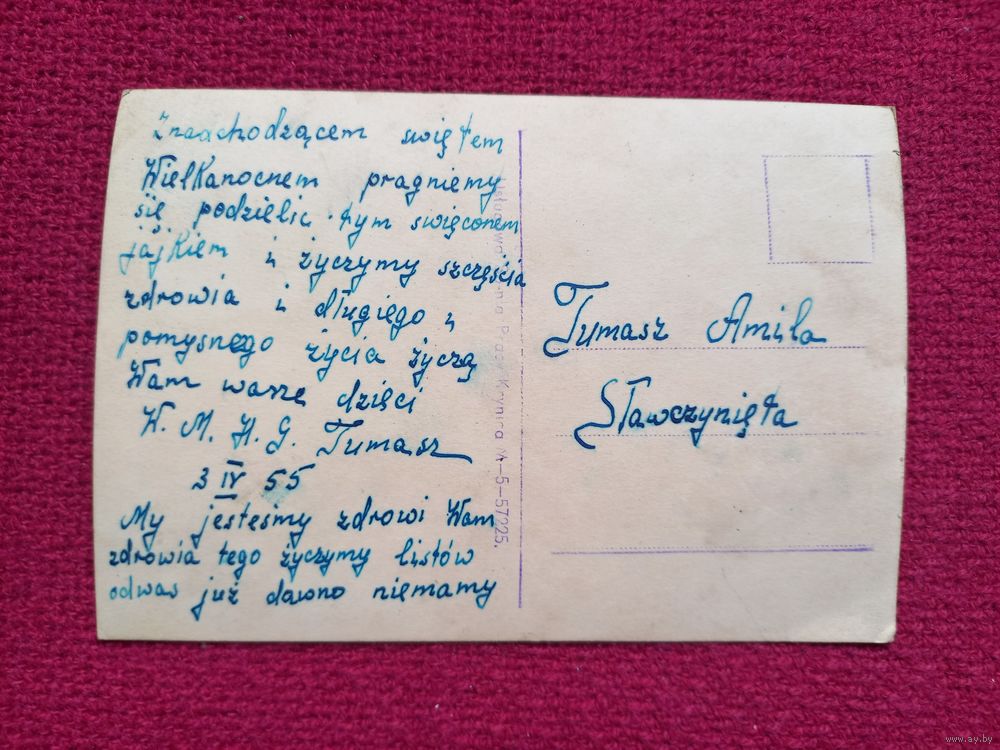 Znaachodzącem swiętem
Wielkanocnem pragniemy
się podzielic tym swięconem
jajkiem i życzymy szczęścia
zdrowia i długiego i
pomysnego życia życzą
Wam wasze dzieci
W. M. H. G. Tumasz
3 IV 55
My jesteśmy zdrowi Wam
zdrowia tego życzymy listów
odwas już dawno niemamy
Tumasz Amila
Sławczynięta
Krynica A-5-57225.
www.ay.by